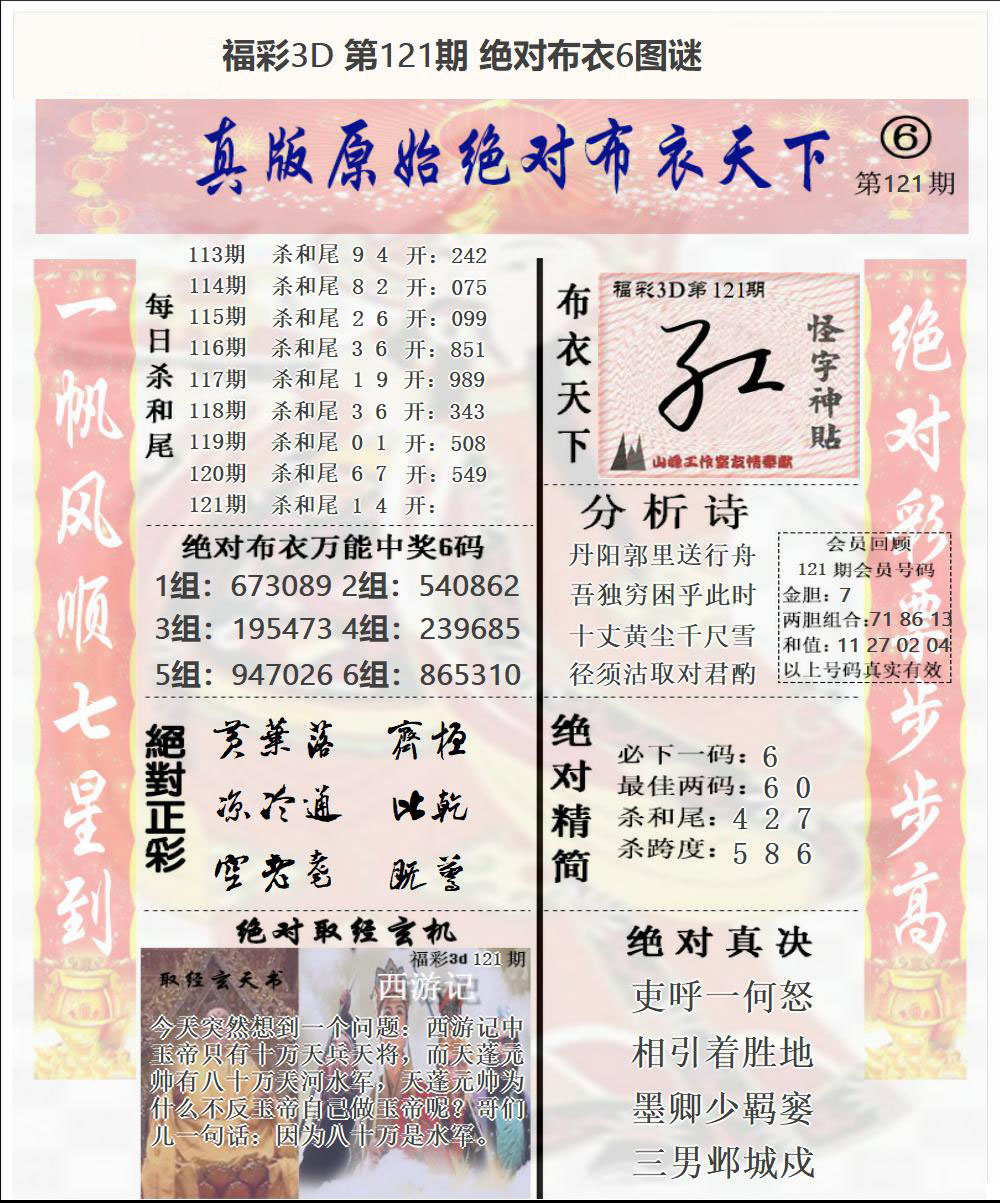 福彩3D 第121期 绝对布衣6图谜
真版原始绝对布衣天下
⑥
第121期
一帆风顺七星到
每日杀和尾
113期 杀和尾 9 4 开：242
114期 杀和尾 8 2 开：075
115期 杀和尾 2 6 开：099
116期 杀和尾 3 6 开：851
117期 杀和尾 1 9 开：989
118期 杀和尾 3 6 开：343
119期 杀和尾 0 1 开：508
120期 杀和尾 6 7 开：549
121期 杀和尾 1 4 开：
绝对布衣万能中奖6码
1组：673089 2组：540862
3组：195473 4组：239685
5组：947026 6组：865310
絕對正彩
黄葉落 齊桓
凉冷通 比乾
空老耄 既尊
绝对取经玄机
福彩3d 121 期
取经玄天书
西游记
今天突然想到一个问题：西游记中
玉帝只有十万天兵天将，而天蓬元
帅有八十万天河水军，天蓬元帅为
什么不反玉帝自己做玉帝呢？哥们
儿一句话：因为八十万是水军。
布衣天下
福彩3D第121期
怪字神贴
山峰工作室友情奉献
分析诗
丹阳郭里送行舟
吾独穷困乎此时
十丈黄尘千尺雪
径须沽取对君酌
会员回顾
121 期会员号码
金胆：7
两胆组合:71 86 13
和值：11 27 02 04
以上号码真实有效
绝对精简
必下一码：6
最佳两码：6 0
杀和尾：4 2 7
杀跨度：5 8 6
绝对真决
吏呼一何怒
相引着胜地
墨卿少羁窭
三男邺城戍
绝对彩票步步高